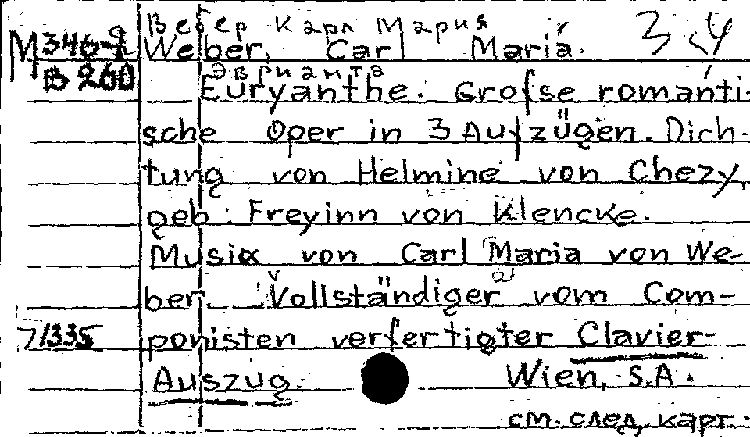 Вебер Карл Мария
М 346-2 Weber, Carl Maria. 3.4
В 260 Эврианта
Euryanthe. Grofse romanti-
sche Oper in 3 Aufzügen. Dich-
tung von Helmine von Chezy,
geb. Freyinn von Klencke.
Musik von Carl Maria von We-
ber. Vollständiger vom Com-
7/335 ponisten verfertigter Clavier-
Auszug. Wien, S.A.
см. след. карт.